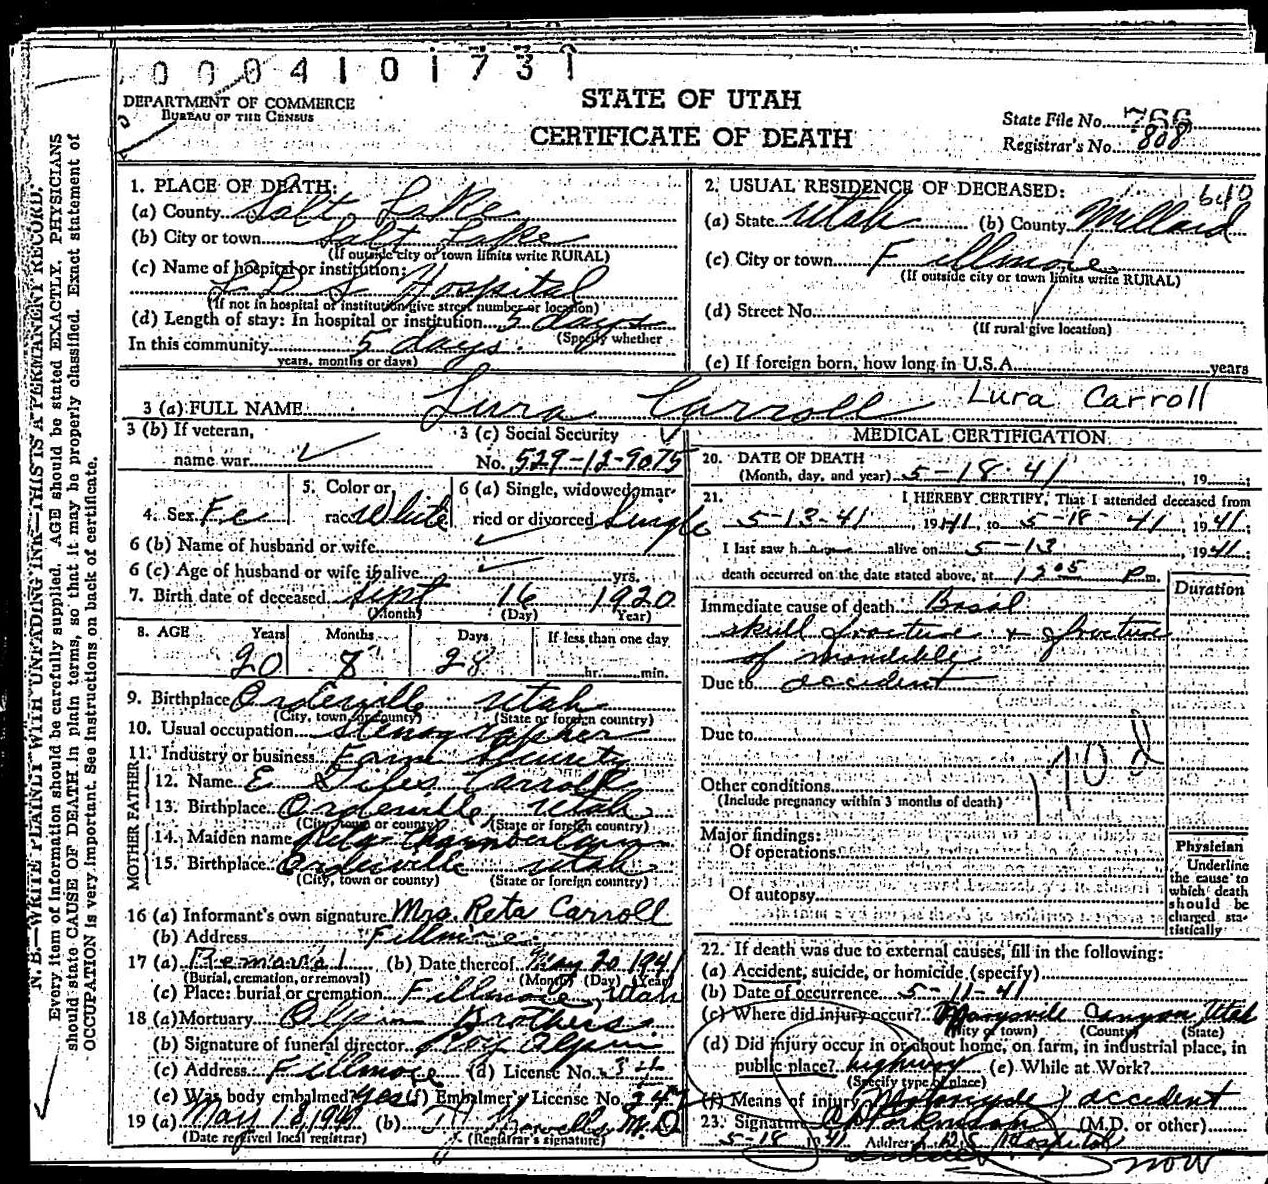 0004101731
DEPARTMENT OF COMMERCE
BUREAU OF THE CENSUS
STATE OF UTAH
CERTIFICATE OF DEATH
State File No. 766
Registrar's No. 808
N. B.—WRITE PLAINLY WITH UNFADING INK—THIS IS A PERMANENT RECORD.
Every item of information should be carefully supplied. AGE should be stated EXACTLY. PHYSICIANS
should state CAUSE OF DEATH in plain terms, so that it may be properly classified. Exact statement of
OCCUPATION is very important. See instructions on back of certificate.
1. PLACE OF DEATH:
(a) County Salt Lake
(b) City or town Salt Lake
(If outside city or town limits write RURAL)
(c) Name of hospital or institution:
L D S Hospital
(If not in hospital or institution give street number or location)
(d) Length of stay: In hospital or institution 5 days
(Specify whether
In this community 5 days
years, months or days)
2. USUAL RESIDENCE OF DECEASED: 640
(a) State Utah (b) County Millard
(c) City or town Fillmore
(If outside city or town limits write RURAL)
(d) Street No.
(If rural give location)
(e) If foreign born, how long in U.S.A. years
3 (a) FULL NAME Lura Carroll Lura Carroll
3 (b) If veteran,
name war
3 (c) Social Security
No. 529-12-9075
4. Sex Fe
5. Color or
race White
6 (a) Single, widowed, mar-
ried or divorced Single
6 (b) Name of husband or wife
6 (c) Age of husband or wife if alive yrs.
7. Birth date of deceased Sept 16 1920
(Month) (Day) (Year)
8. AGE Years Months Days If less than one day
20 8 28 hr. min.
9. Birthplace Orderville Utah
(City, town or county) (State or foreign country)
10. Usual occupation Stenographer
11. Industry or business Farm Security
FATHER
12. Name E Carroll
13. Birthplace Orderville Utah
(City, town or county) (State or foreign country)
MOTHER
14. Maiden name Chamberlain
15. Birthplace Orderville Utah
(City, town or county) (State or foreign country)
16 (a) Informant's own signature Mrs. Reta Carroll
(b) Address Fillmore
17 (a) Removal (b) Date thereof May 20 1941
(Burial, cremation, or removal) (Month) (Day) (Year)
(c) Place: burial or cremation Fillmore, Utah
18 (a) Mortuary Olpin Brothers
(b) Signature of funeral director Roy Olpin
(c) Address Fillmore (d) License No. 34
(e) Was body embalmed? yes (f) Embalmer's License No.
19 (a) May 18, 1941 (b) M.D.
(Date received local registrar) (Registrar's signature)
MEDICAL CERTIFICATION
20. DATE OF DEATH
(Month, day, and year) 5-18-41, 19
21. I HEREBY CERTIFY, That I attended deceased from
5-13-41, 1941, to 5-18-41, 1941;
I last saw h alive on 5-13, 1941;
death occurred on the date stated above, at 1205 P m.
Duration
Immediate cause of death Basal
skull fracture & fracture
of mandible
Due to accident
Due to
170 d
Other conditions
(Include pregnancy within 3 months of death)
Major findings:
Of operations
Of autopsy
Physician
Underline
the cause to
which death
should be
charged sta-
tistically
22. If death was due to external causes, fill in the following:
(a) Accident, suicide, or homicide (specify)
(b) Date of occurrence 5-11-41
(c) Where did injury occur? Marysville Canyon Utah
(City or town) (County) (State)
(d) Did injury occur in or about home, on farm, in industrial place, in
public place? highway (e) While at Work?
(Specify type of place)
(f) Means of injury Motorcycle accident
23. Signature (M.D. or other)
5-18 1941 Address L.D.S. Hospital
Snow